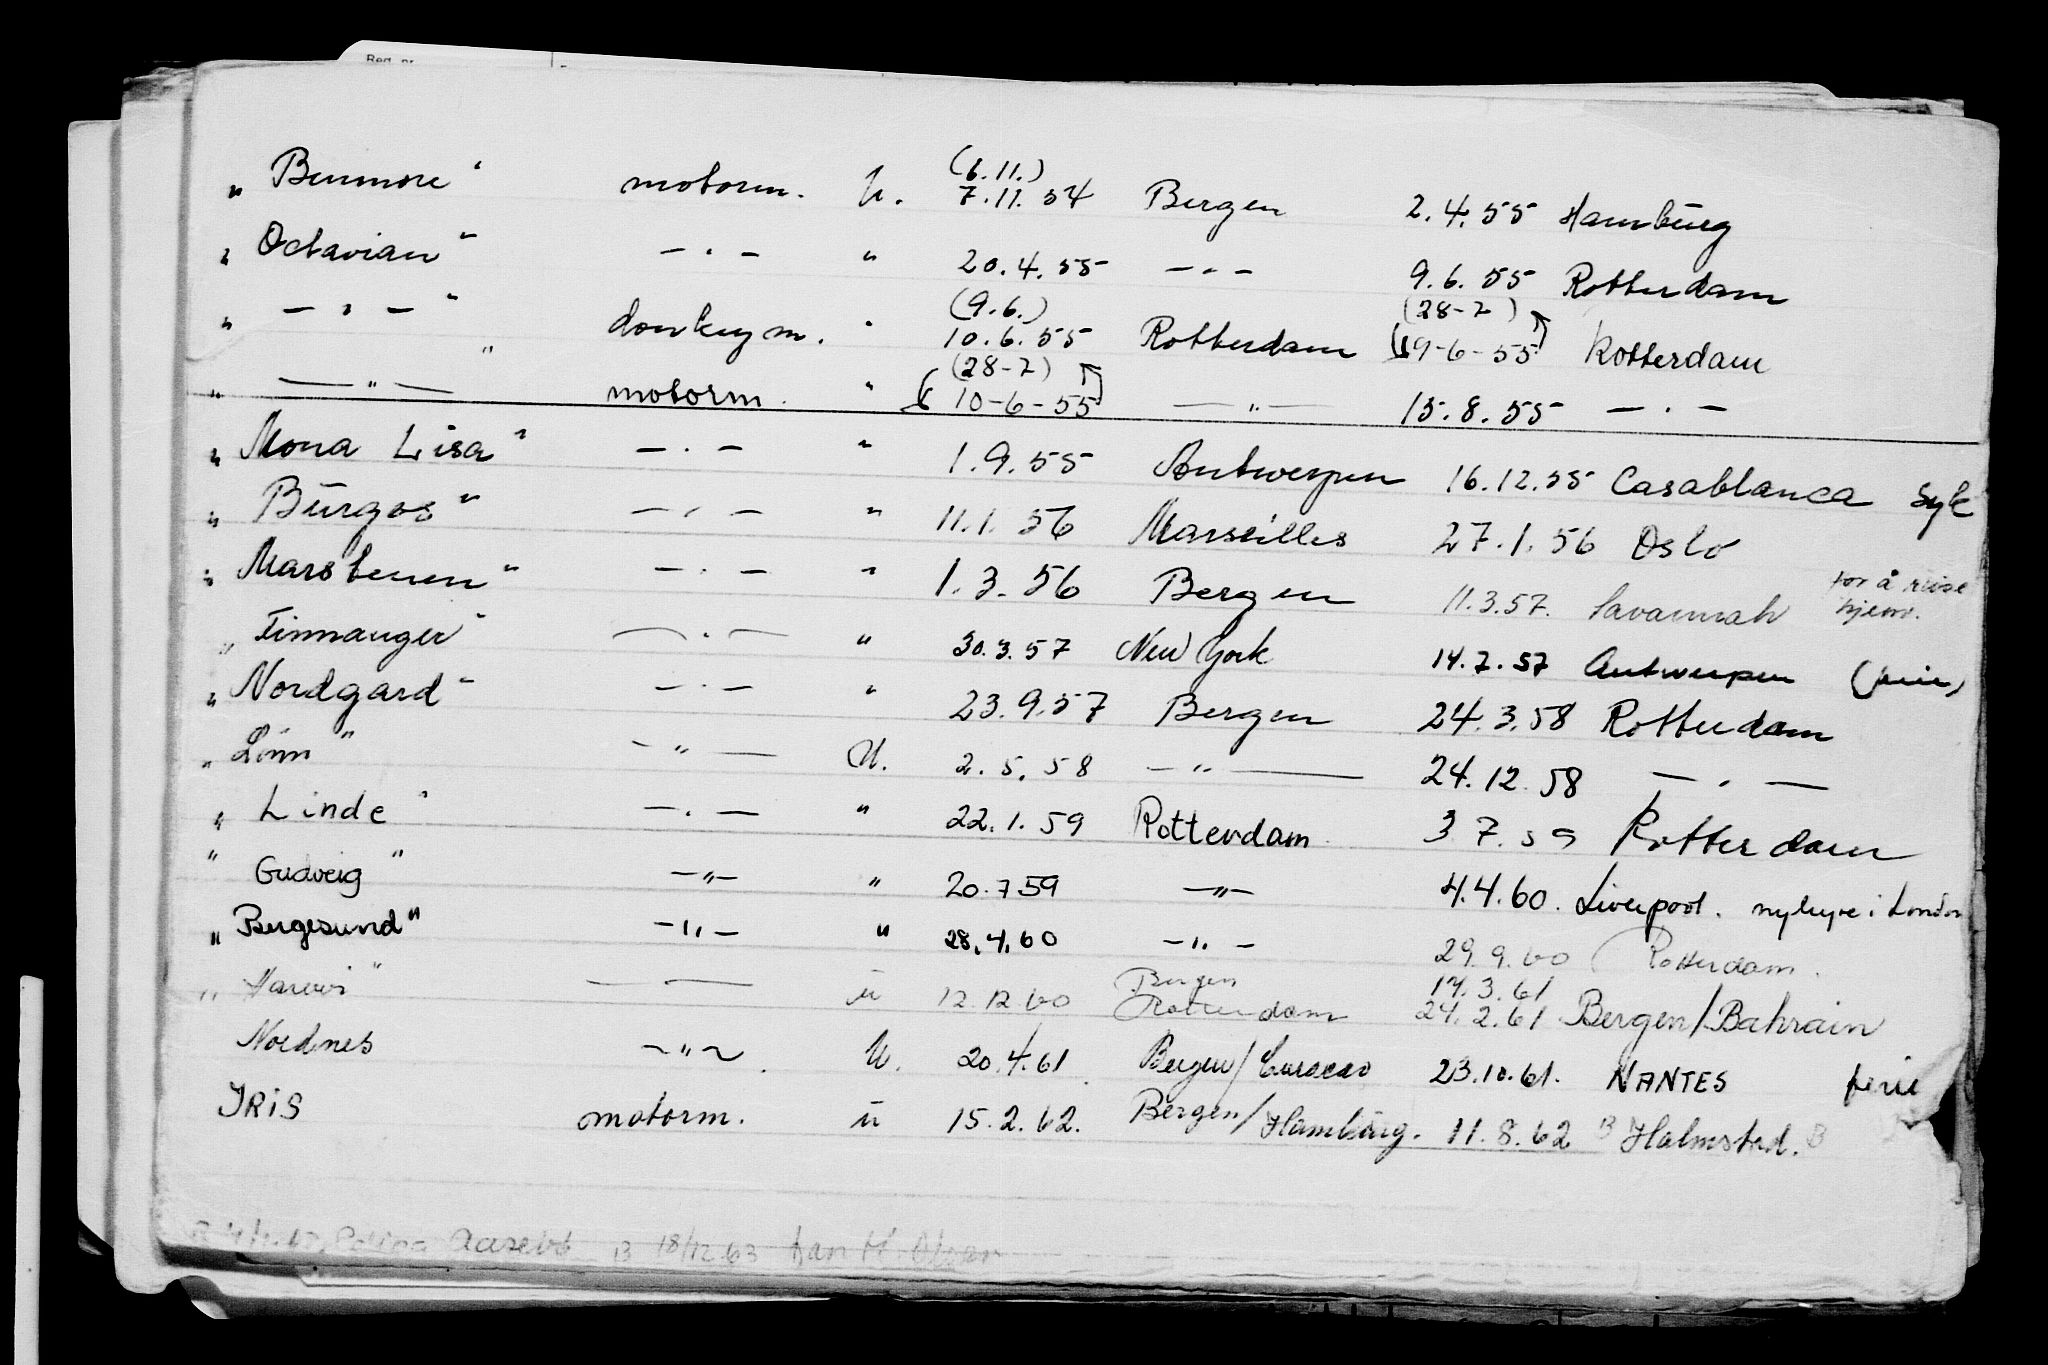 „ Benmore " motorm. U. (6.11.) 7.11.54 Bergen 2.4.55 Hamburg
„ Octavian " — " — " 20.4.55 — " — 9.6.55 Rotterdam
„ — " — " donkeym. " (9.6.) 10.6.55 Rotterdam (28-7) (19-6-55) Rotterdam
„ — " — " motorm. " (28-7) (10-6-55) — " — 15.8.55 — " —
„ Mona Lisa " — " — " 1.9.55 Antwerpen 16.12.55 Casablanca Syk
„ Burgos " — " — " 11.1.56 Marseilles 27.1.56 Oslo
„ Marstenen " — " — " 1.3.56 Bergen 11.3.57. Savannah for å reise hjem.
„ Finnanger " — " — " 30.3.57 New York 14.7.57 Antwerpen
„ Nordgard " — " — " 23.9.57 Bergen 24.3.58 Rotterdam
„ Lönn " — " — U. 2.5.58 — " — 24.12.58 — " —
„ Linde " — " — " 22.1.59 Rotterdam 3 7.59 Rotterdam
" Gudveig " — " — " 20.7 59 — " — 4.4.60. Liverpool. nyhyre i London
„ Bergesund " — " — " 28.4.60 — " — 29.9.60 Rotterdam.
„ " — " — u 12.12.60 Bergen Rotterdam 14.3.61 24.2.61 Bergen/Bahrain
Nordnes — " — . U. 20.4.61. Bergen/Curacao 23.10.61. NANTES ferie
IRIS motorm. u 15.2.62. Bergen/Hamburg. 11.8.62 B Halmstad. B
B 18/12.63